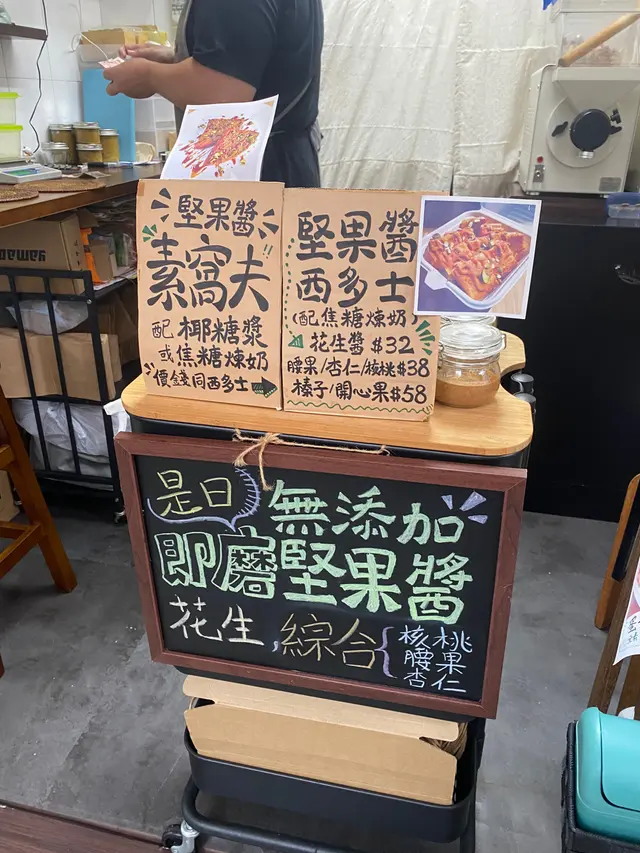 堅果醬
素窩夫
配椰糖漿
或焦糖煉奶
價錢同西多士
堅果醬
西多士
(配焦糖煉奶)
花生醬 $32
腰果/杏仁/核桃 $38
榛子/開心果 $58
是日
無添加
即磨堅果醬
花生, 綜合{
核桃
腰果
杏仁
yama